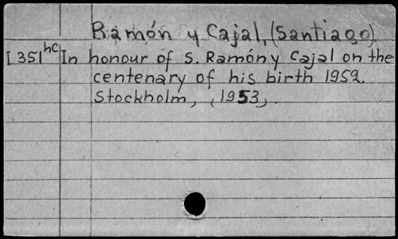 Ramón y Cajal, (Santiago)
I 351hc In honour of S. Ramón y Cajal on the
centenary of his birth 1952.
Stockholm, (1953).